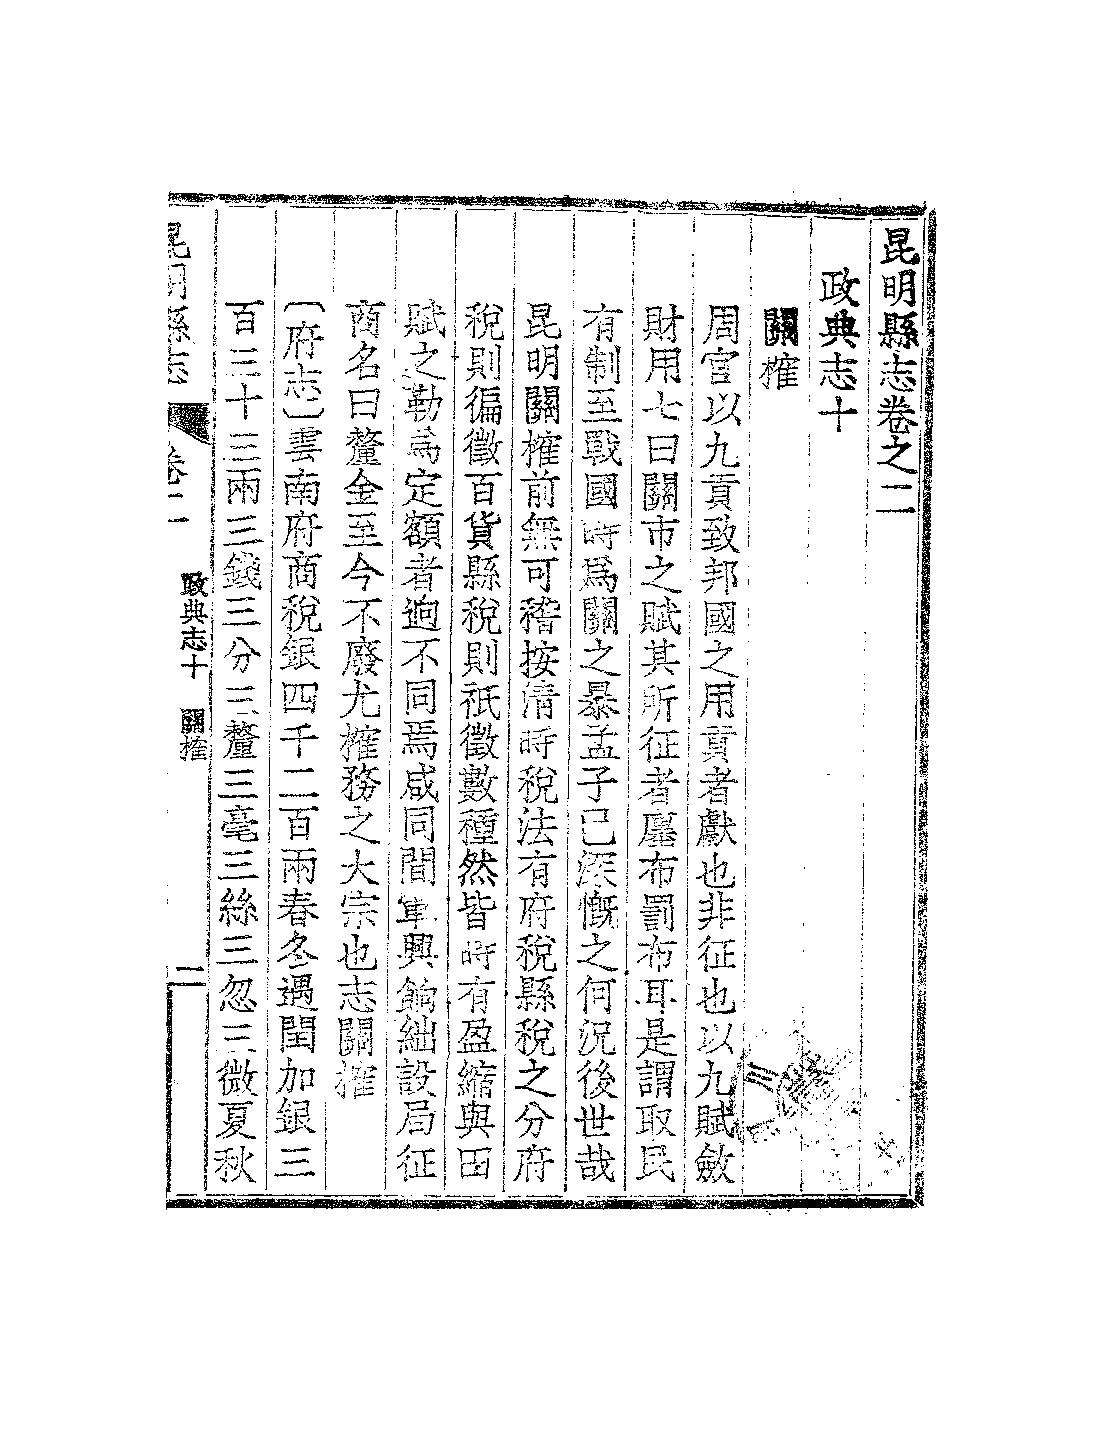 昆明縣志卷之二
政典志十
關榷
周官以九貢致邦國之用貢者獻也非征也以九賦斂
財用七曰關市之賦其所征者廛布罰布耳是謂取民
有制至戰國時爲關之暴孟子已深慨之何況後世哉
昆明關榷前無可稽按清時稅法有府稅縣稅之分府
稅則徧徵百貨縣稅則祇徵數種然皆時有盈縮與田
賦之勒爲定額者逈不同焉咸同間軍興餉絀設局征
商名曰釐金至今不廢尤榷務之大宗也志關榷
〔府志〕雲南府商稅銀四千二百兩春冬遇閏加銀三
百三十三兩三錢三分三釐三毫三絲三忽三微夏秋
昆明縣志 卷二 政典志十 關榷 一